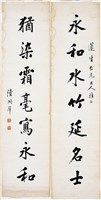 永和水竹延名士
猶染霜毫寫永和
陸潤庠